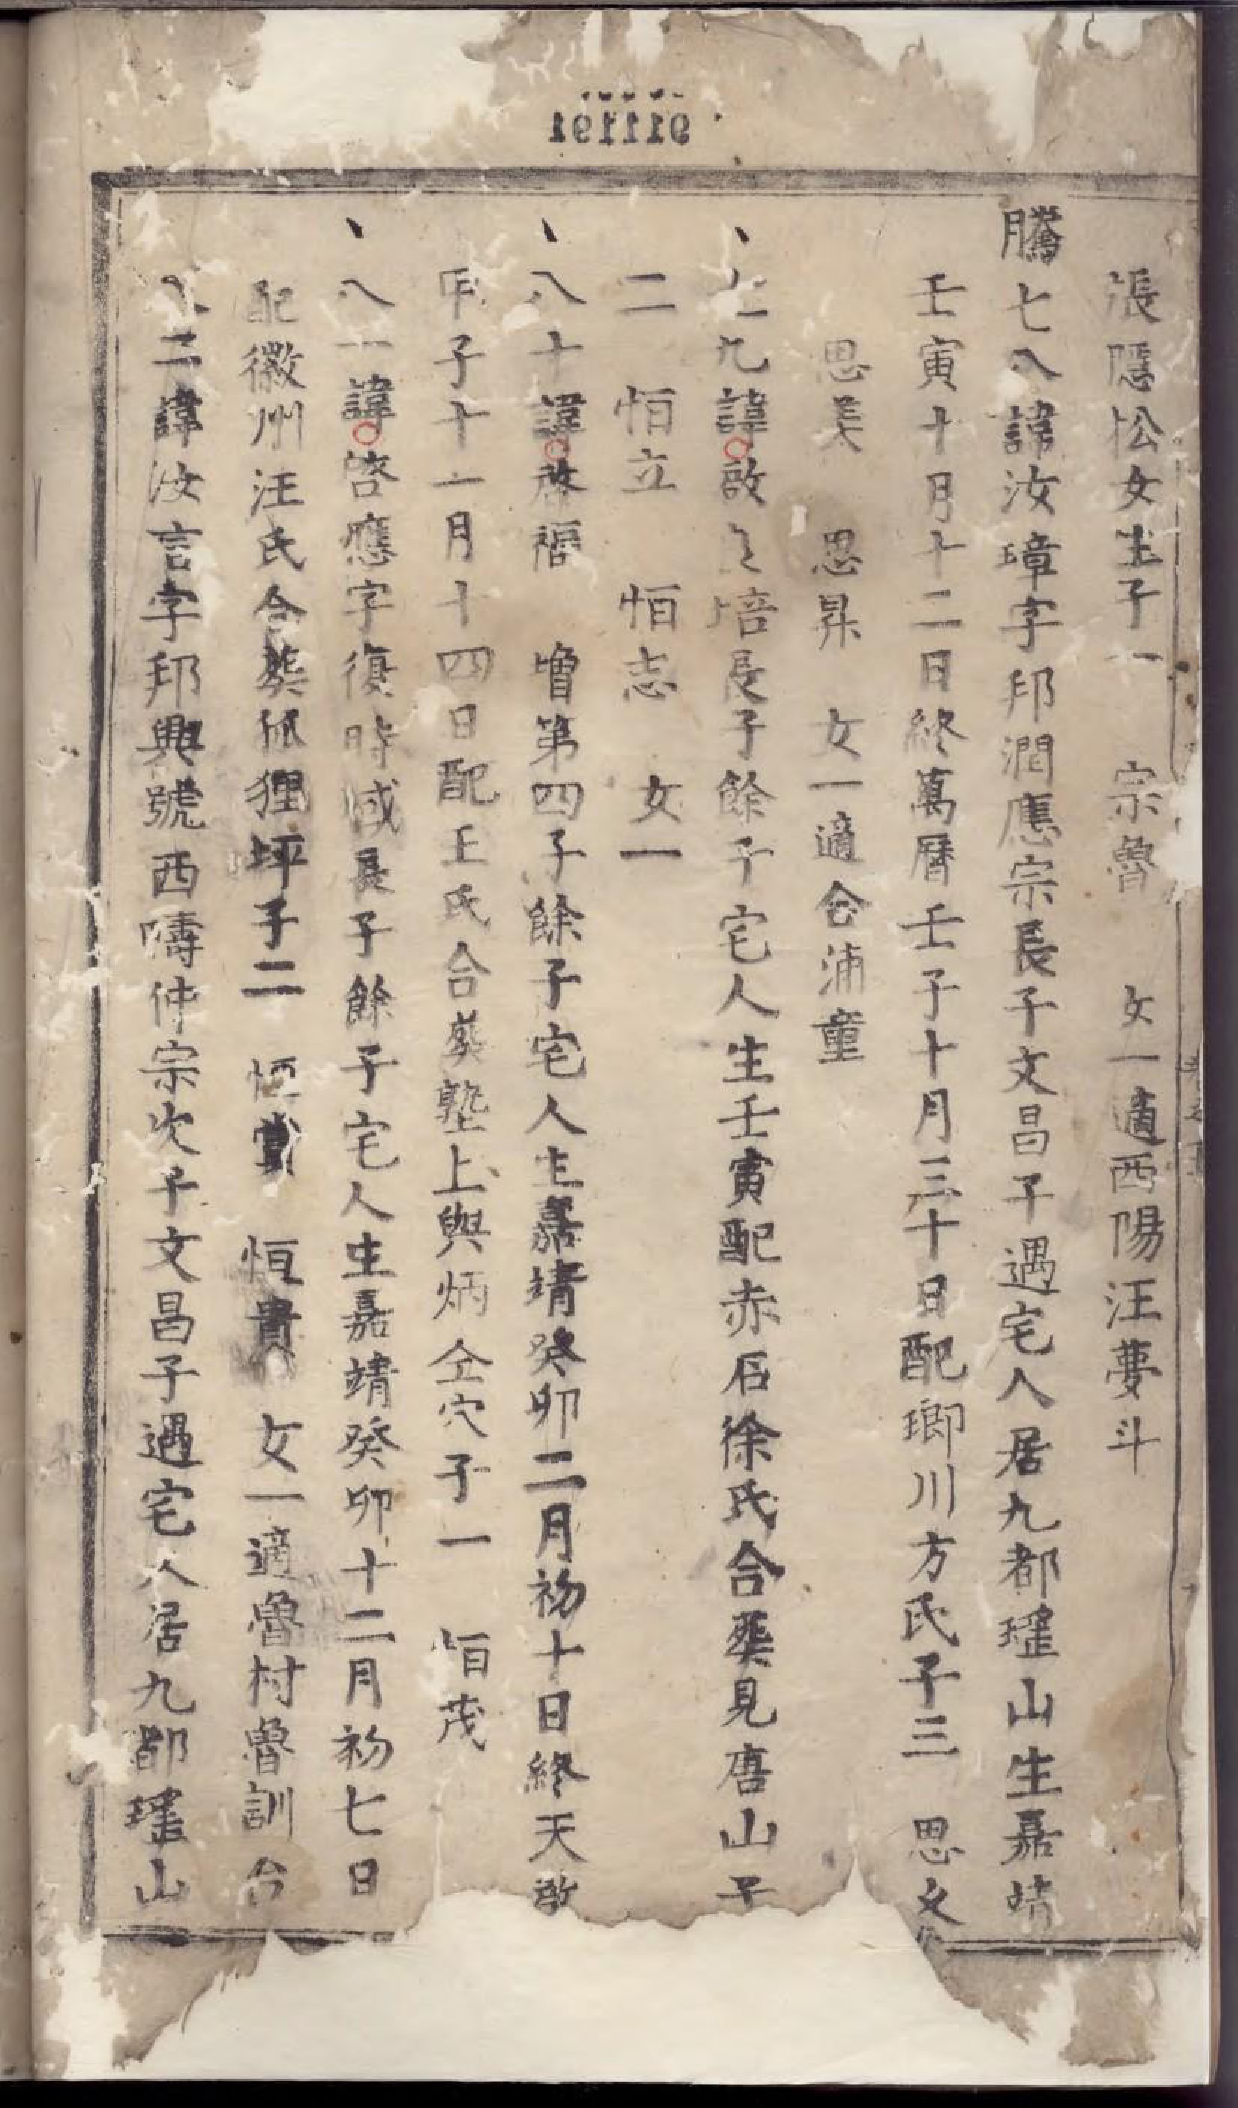 張隱松女生子一 宗魯 女一適西陽汪夢斗
騰七八諱汝璋字邦潤應宗長子文昌子遇宅人居九都瑤山生嘉靖
壬寅十月十二日終萬曆壬子十月三十日配瑯川方氏子三 思文
思美 思昇 女一適合浦童
九諱啟 培長子餘子宅人生壬寅配赤石徐氏合葬見唐山子
二 恒立 恒志 女一
八十諱啓福 增第四子餘子宅人生嘉靖癸卯二月初十日終天啟
甲子十一月十四日配王氏合葬塾上與炳仝穴子一 恒茂
八一諱啓應字復時 長子餘子宅人生嘉靖癸卯十二月初七日
配徽州汪氏合葬狐狸坪子二 恒賞 恒貴 女一適魯村魯訓
八二諱汝言字邦興號西疇仲宗次子文昌子遇宅人居九都瑤山
191116